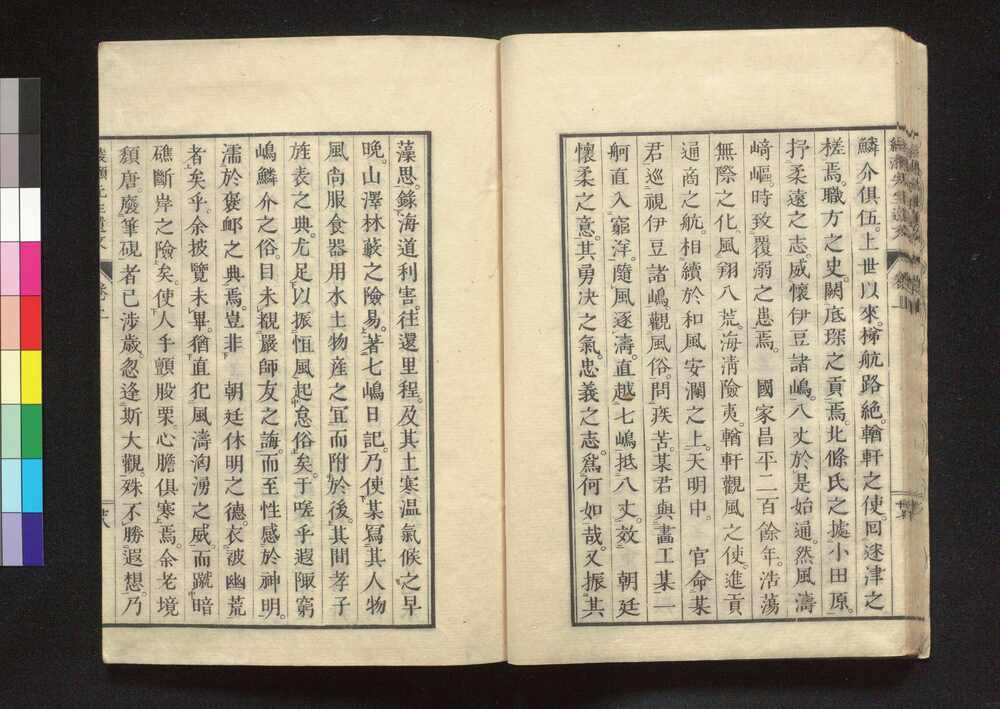 鱗介俱伍。上世以來。梯航路絕。輶軒之使。囘迷津之
槎焉。職方之史。闕底琛之貢焉。北條氏之據小田原。
抒柔遠之志。威懷伊豆諸嶋。八丈於是始通。然風濤
﨑嶇。時致覆溺之患焉。 國家昌平二百餘年。浩蕩
無際之化。風翔八荒。海淸險夷。輶軒觀風之使。進貢
通商之航。相續於和風安瀾之上。天明中。 官命某
君巡視伊豆諸嶋。觀風俗。問疾苦。某君與畵工某一
舸直入窮洋。隨風逐濤。直越七嶋抵八丈。效 朝廷
懷柔之意。其勇决之氣。忠義之志。爲何如哉。又振其
藻思。錄海道利害。往還里程。及其土寒温氣候之早
晩。山澤林藪之險易。著七嶋日記。乃使某寫其人物
風尙服食器用水土物產之冝而附於後。其間孝子
旌表之典。尤足以振恒風起怠俗矣。于嗟乎遐陬窮
嶋鱗介之俗。目未覩嚴師友之誨。而至性感於神明。
濡於褒䘏之典焉。豈非 朝廷休明之德。衣被幽荒
者矣乎。余披覽未畢。猶直犯風濤洶湧之威。而蹴暗
礁斷岸之險矣。使人手顫股栗。心膽俱寒焉。余老境
頽唐。廢筆硯者已涉歲。忽逢斯大觀。殊不勝遐想。乃